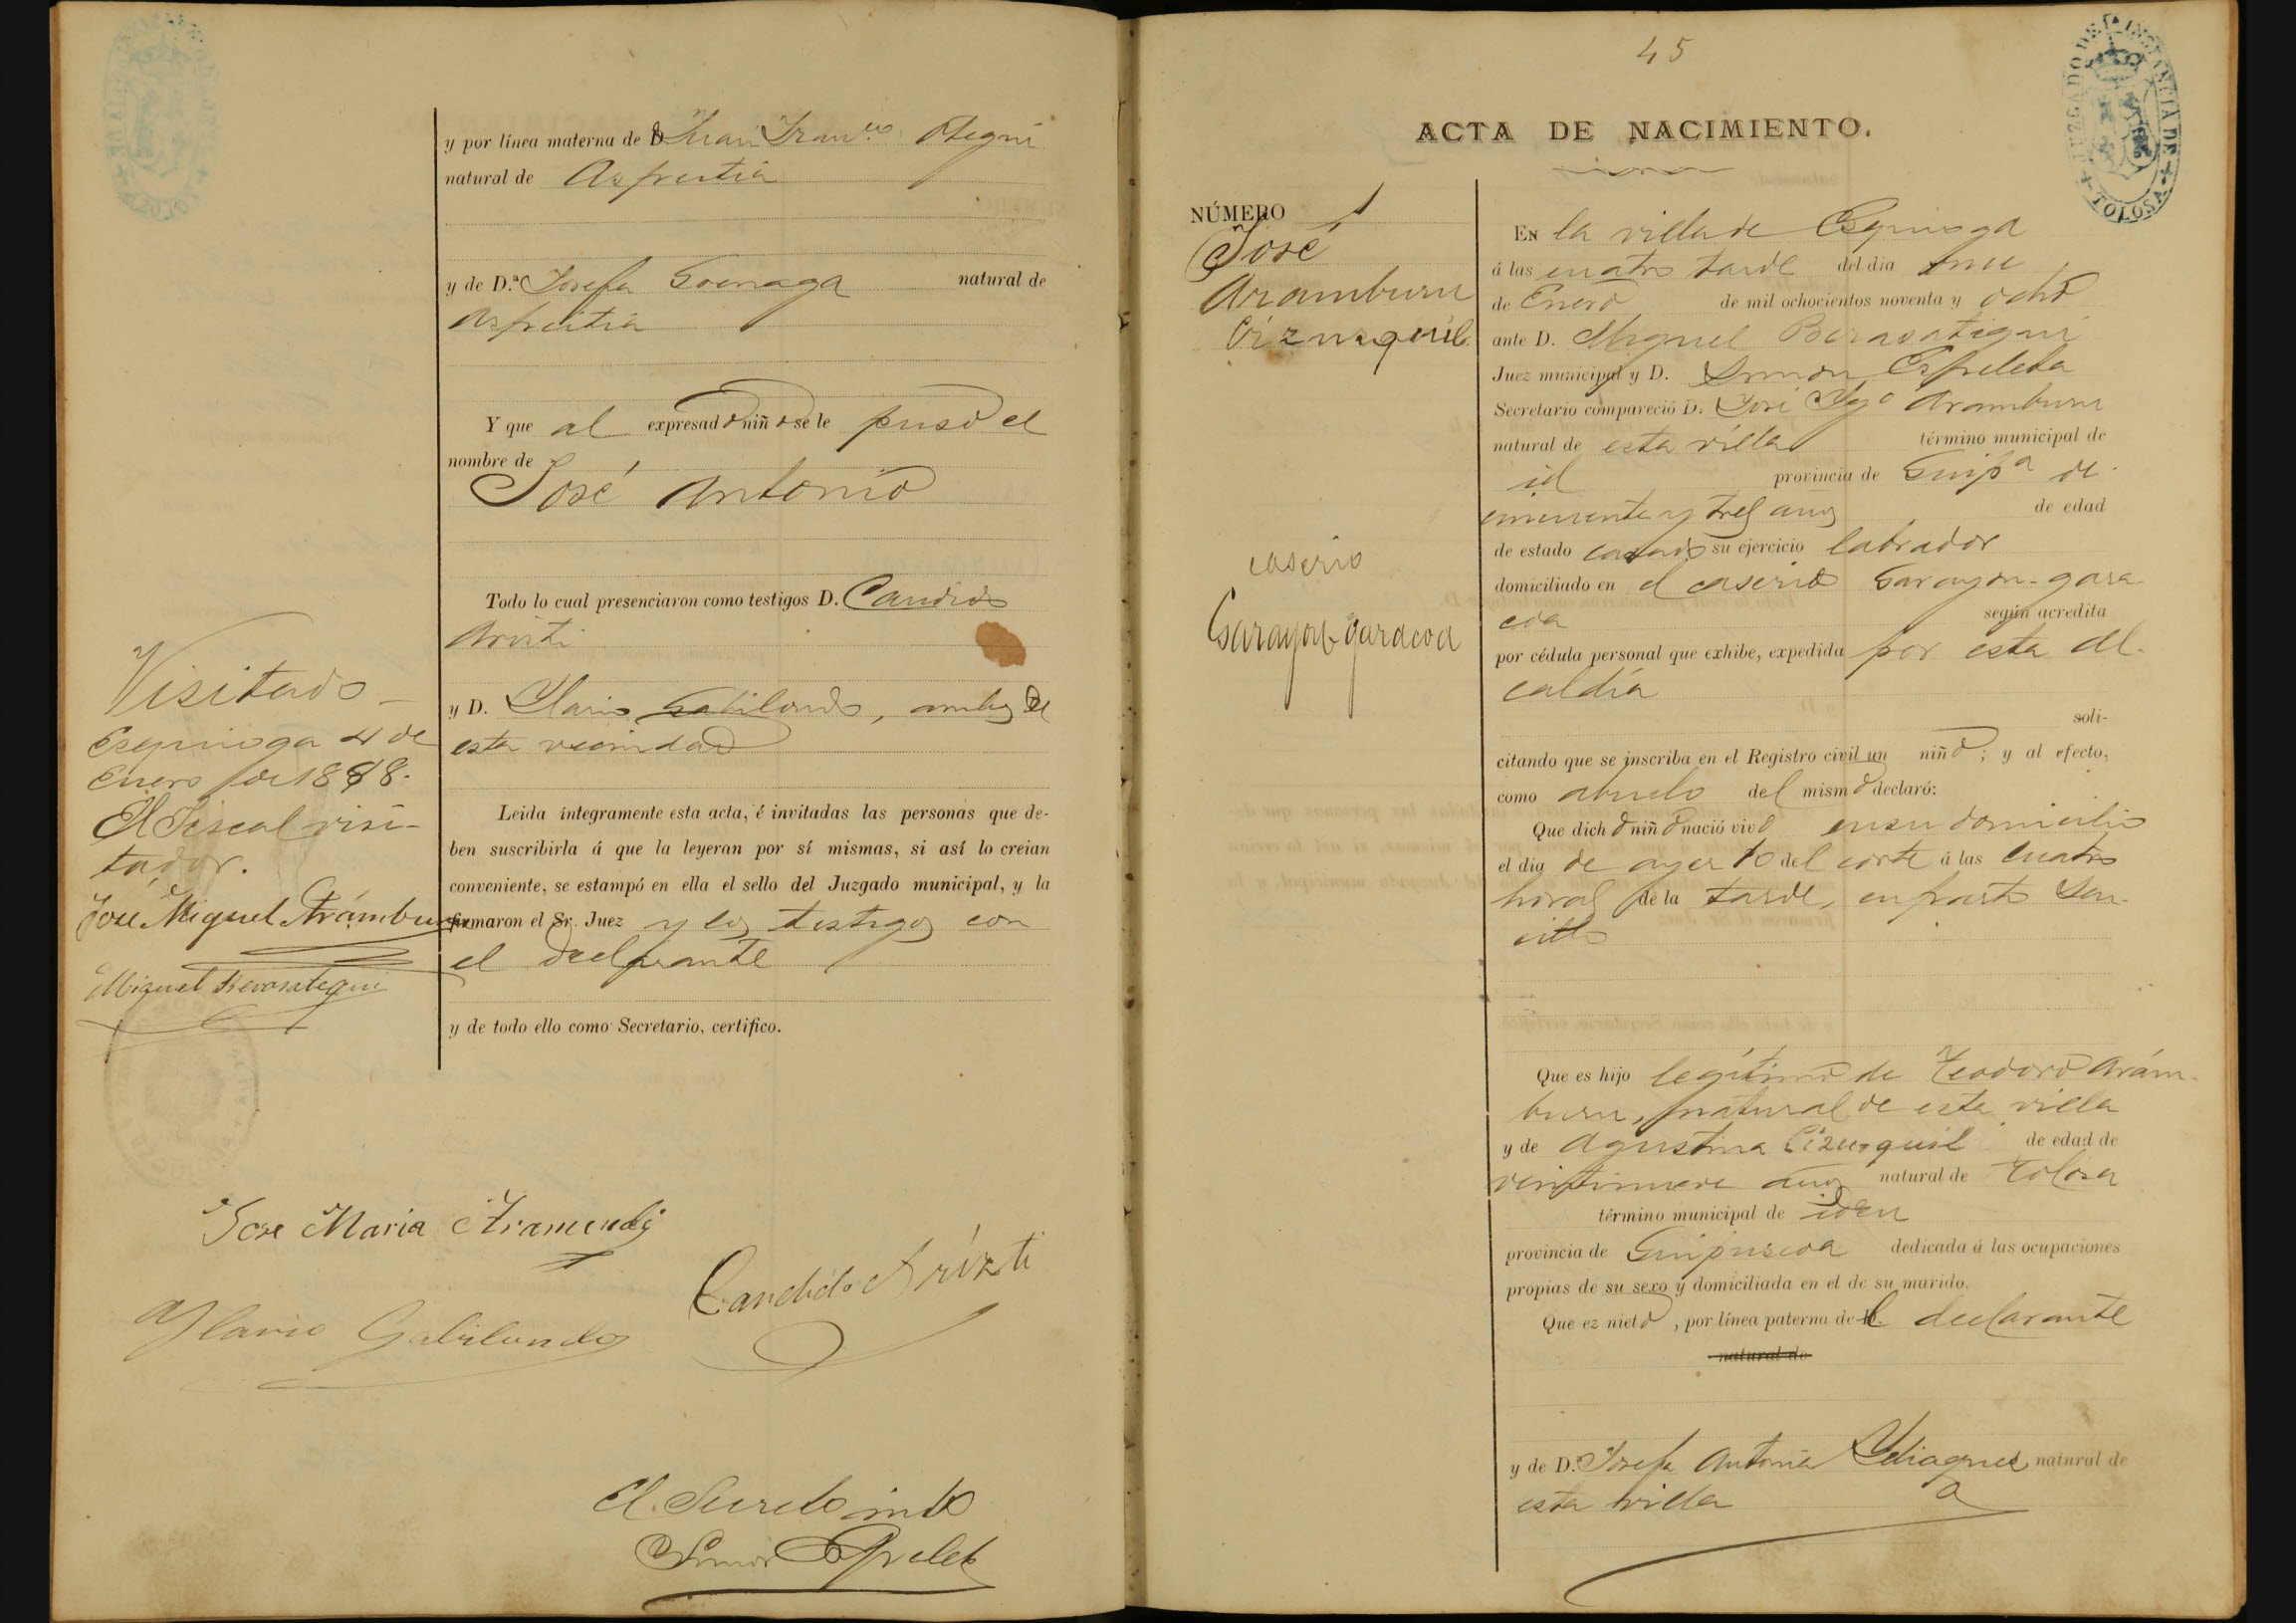 y por línea materna de D Juan Fran.co Otegui
natural de Aspeitia
y de D.ª Josefa Goenaga natural de
Aspeitia
Y que al expresado niño se le puso el
nombre de
José Antonio
Todo lo cual presenciaron como testigos D. Candido
Aristi
y D. Ylario Gabilondo, ambos de
esta vecindad
Leida íntegramente esta acta, é invitadas las personas que de-
ben suscribirla á que la leyeran por sí mismas, si así lo creian
conveniente, se estampó en ella el sello del Juzgado municipal, y la
firmaron el Sr. Juez y los testigos con
el declarante
y de todo ello como Secretario, certifico.
Visitado
Ezquioga 4 de
Enero de 1898.
El Fiscal visi-
tador.
José Miguel Arámburu
Miguel Berasategui
Jose Maria Aramendi
Candido Arizti
Ylario Gabilondo
El Secretario
Simon Espeleta
45
ACTA DE NACIMIENTO.
JUZGADO DE 1.ª INSTANCIA DE
TOLOSA
NÚMERO 1
José
Aramburu
Cizurquil
caserio
Garayoa-garacoa
En la villa de Ezquioga
á las cuatro tarde del dia once
de Enero de mil ochocientos noventa y ocho
ante D. Miguel Berasategui
Juez municipal y D. Simon Espeleta
Secretario compareció D. José Ygº Aramburu
natural de esta villa término municipal de
id provincia de Guipª de
cincuenta y tres años de edad
de estado casado su ejercicio labrador
domiciliado en el caserio Garayoa-gara-
coa según acredita
por cédula personal que exhibe, expedida por esta Al-
caldía
soli-
citando que se inscriba en el Registro civil un niño; y al efecto,
como abuelo del mismo declaró:
Que dicho niño nació vivo en su domicilio
el dia de ayer 10 del corte á las cuatro
horas de la tarde, en parto sen-
cillo
Que es hijo legítimo de Teodoro Arám-
buru, natural de esta villa
y de Agustina Cizurquil de edad de
veintinueve años natural de Tolosa
término municipal de idem
provincia de Guipuscoa dedicada á las ocupaciones
propias de su sexo y domiciliada en el de su marido.
Que ez nieto, por línea paterna del declarante
natural de
y de D.ª Josefa Antonia Ydiaquez natural de
esta villa